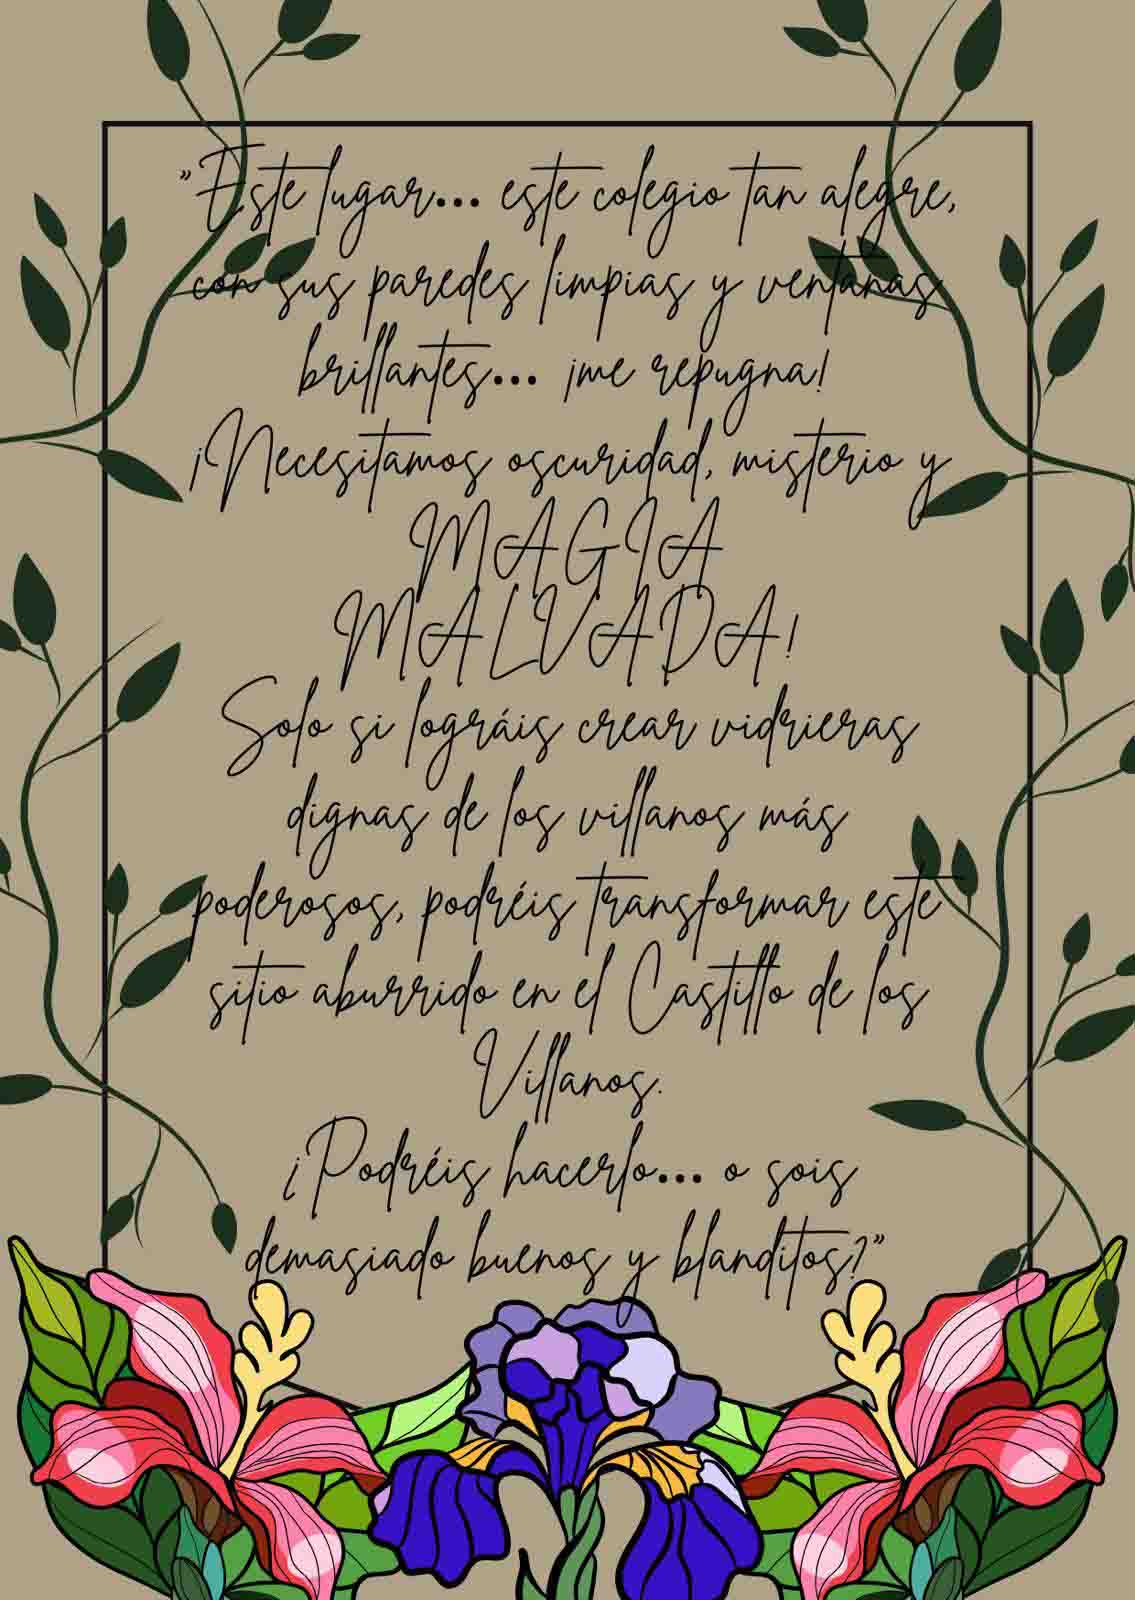 "Este lugar... este colegio tan alegre,
con sus paredes limpias y ventanas
brillantes... ¡me repugna!
¡Necesitamos oscuridad, misterio y
MAGIA
MALVADA!
Solo si lográis crear vidrieras
dignas de los villanos más
poderosos, podréis transformar este
sitio aburrido en el Castillo de los
Villanos.
¿Podréis hacerlo... o sois
demasiado buenos y blanditos?"